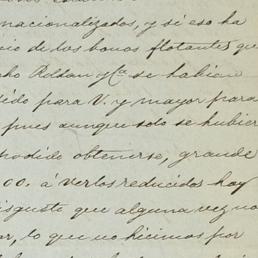 nacionalizados, y si eso ha
io de los bonos flotantes que
ho Roldan y Ca se habien
dido para V. y mayor para
pues aunque solo se hubier
podido obtenerse, grande
00. á verlos reducidos hoy
isgusto que alguna vez no
ar, lo que no hicimos por